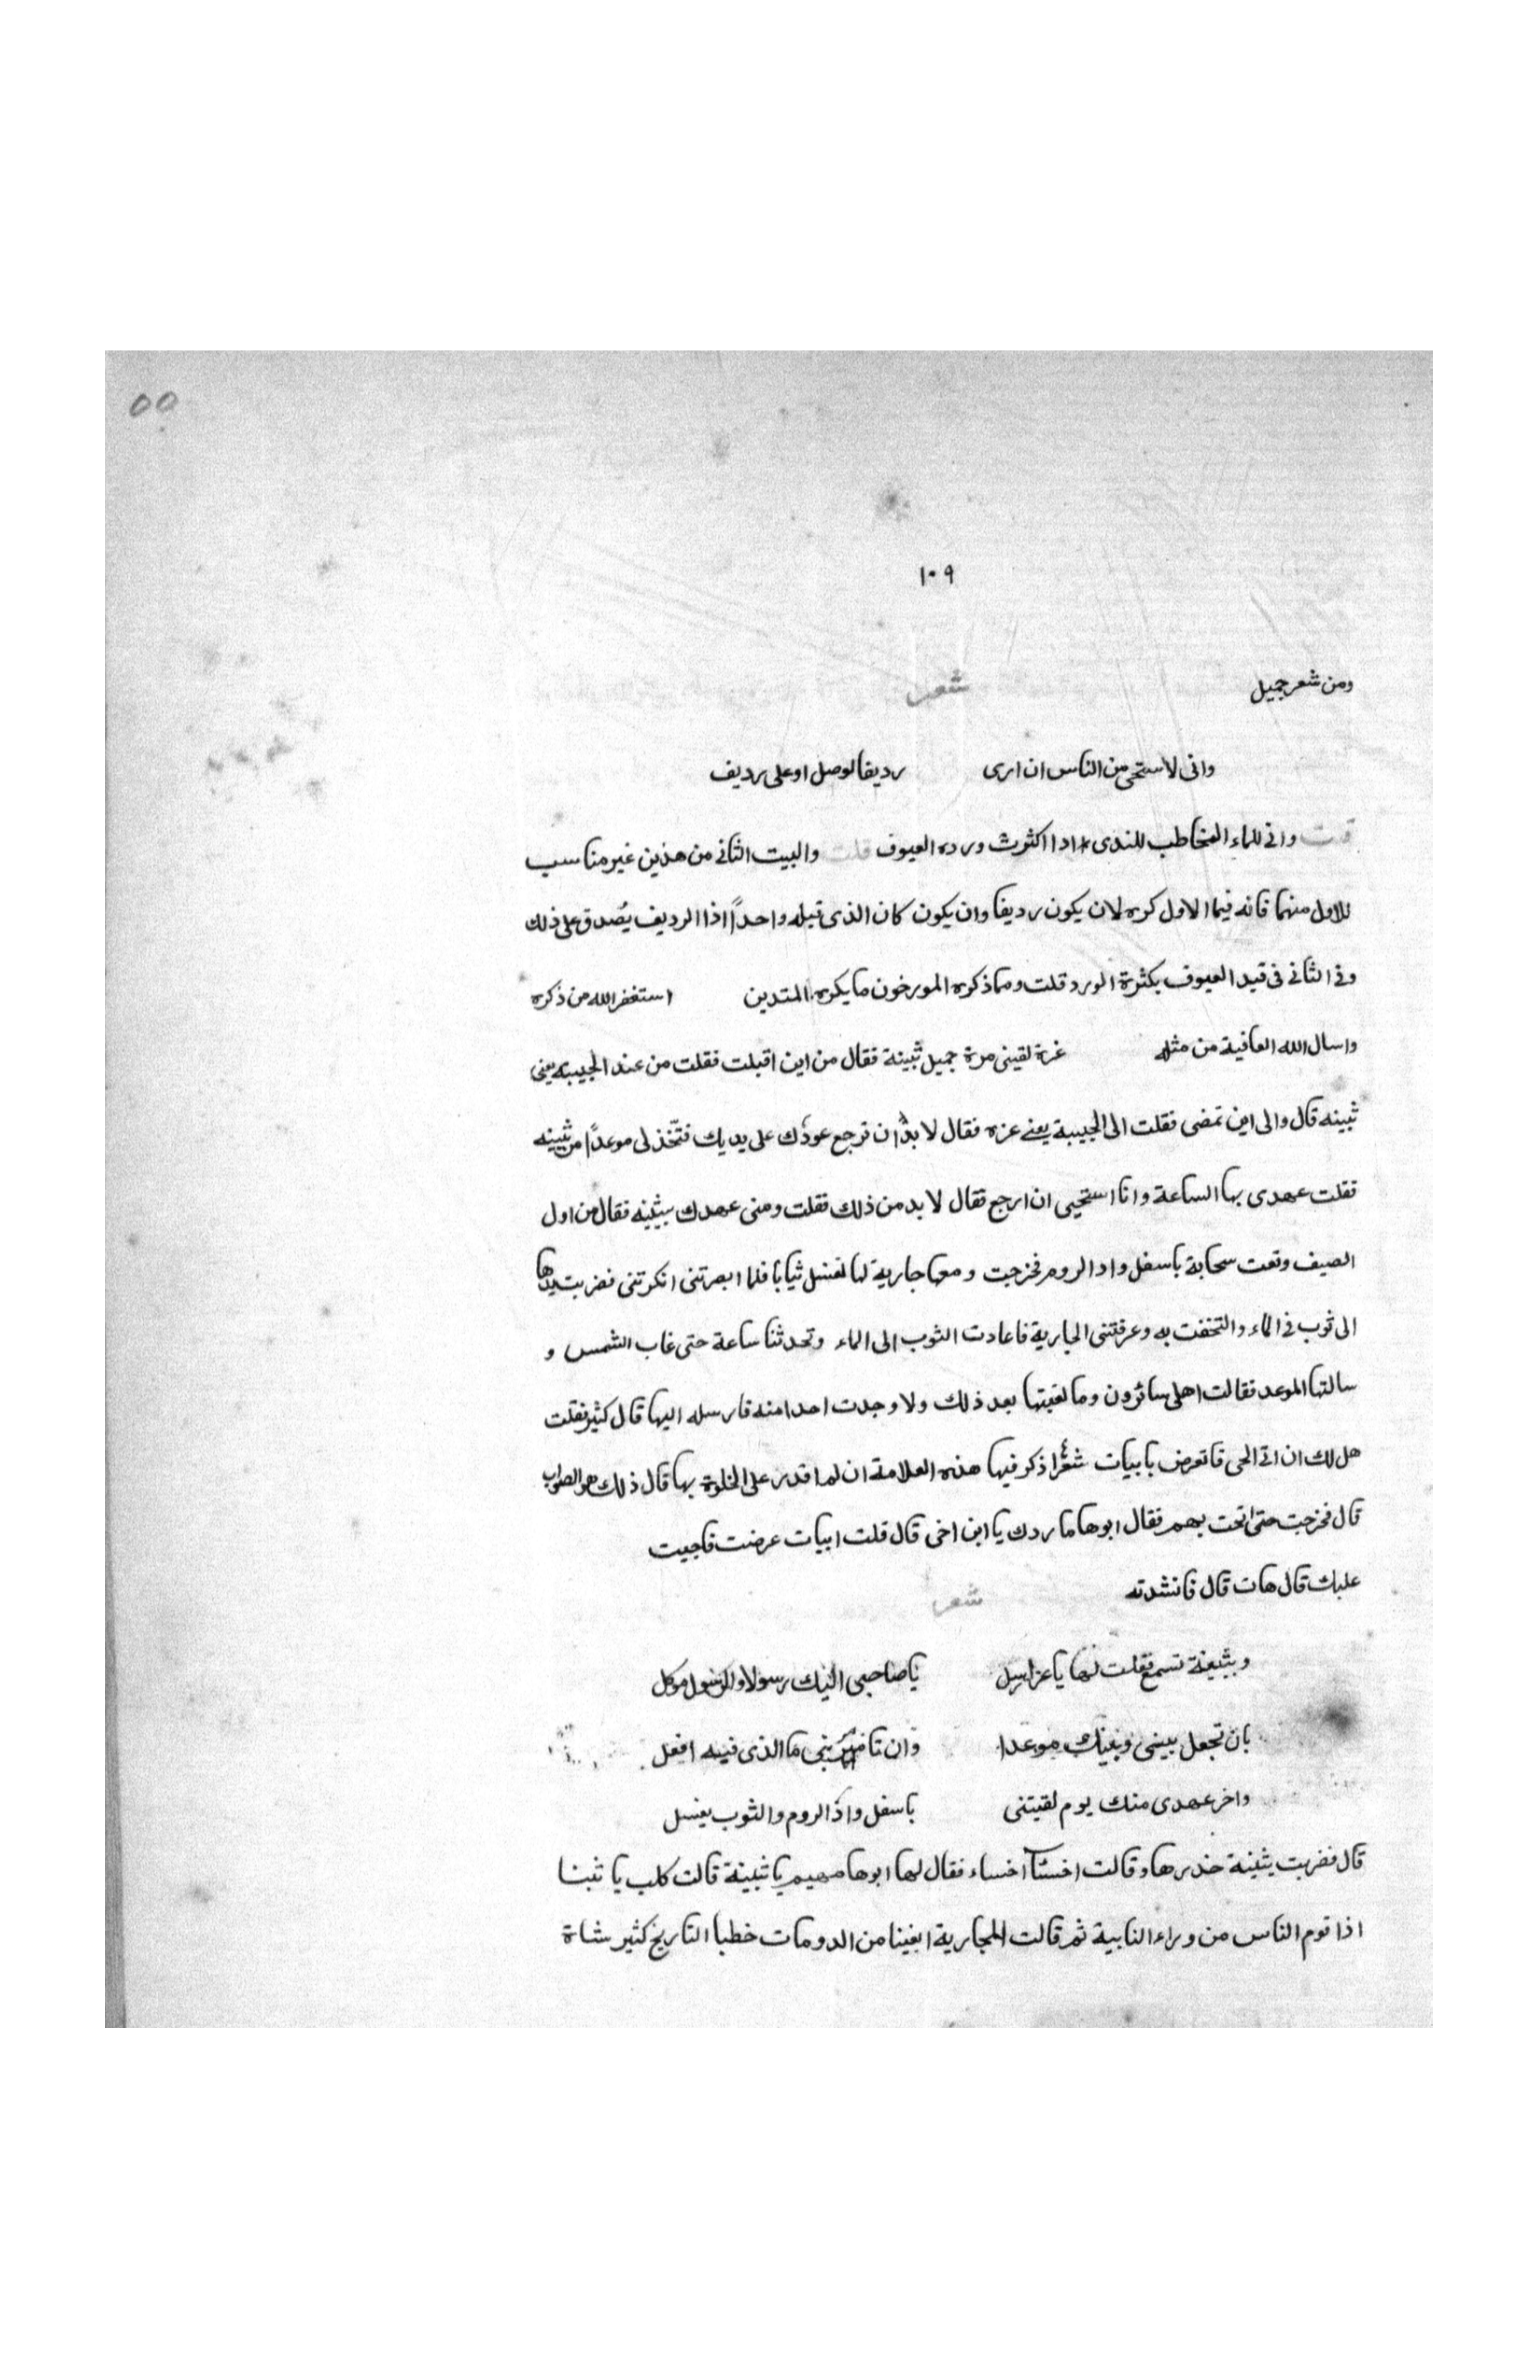 ٥٥
١٠٩
ومن شعر جميل شعر
وانى لاستحى من الناس ان ارى رديفا لوصل او على رديف
قلت وانى للماء المخاطب للندى اذا اكثرت ورده العيوف قلت والبيت الثانى من هذين غير مناسب
للاول منهما فانه فيما الاول كره لان يكون رديفا وان يكون كان الذى قبله واحداً اذا الرديف يصدق على ذلك
وفى الثانى فى قيد العيوف بكثرة الورد قلت ومما ذكره المورخون ما يكره المتدين استغفر الله من ذكره
واسال الله العافية من مثله غرة لقينى مرة جميل ثبينة فقال من اين اقبلت فقلت من عند الحبيبة يعنى
ثبينه قال والى اين تمضى فقلت الى الحبيبة يعنى عزه فقال لا بدّ ان ترجع عودك على يديك فتتخذ لى موعداً من ثبينه
فقلت عهدى بها الساعة وانا استحيى ان ارجع فقال لا بد من ذلك فقلت ومتى عهدك ببثينه فقال من اول
الصيف وقعت سحابة باسفل واد الروم فخرجت ومعها جارية لها تغسل ثيابا فلما ابصرتنى انكرتنى فضربت يدها
الى ثوب فى الماء والتحفت به وعرفتنى الجارية فاعادت الثوب الى الماء وتحدثنا ساعة حتى غاب الشمس و
سالتها الموعد فقالت اهلى سائرون وما لقيتها بعد ذلك ولا وجدت احدا منه فارسله اليها قال كثير فقلت
هل لك ان اتى الحى فاتعرض بابيات شعرا اذكر فيها هذه العلامة ان لم اقدر على الخلوة بها قال ذلك هو الصواب
قال فخرجت حتى اتحت بهم فقال ابوها ما ردك يا ابن اخى قال قلت ابيات عرضت فاجيت
عليك قال هات قال فانشدته شعر
وبثينة تسمع فقلت لها يا عز ارسل يا صاحبى اليك رسولا والرسول موكل
بان تجعل بينى وبينك موعدا وان تامرينى ما الذى فيه افعل
واخر عهدى منك يوم لقيتنى باسفل واد الروم والثوب يغسل
قال فضربت بثينة خدرها وقالت اخسئا اخساء فقال لها ابوها مهيم يا ثبينة قالت كلب يا تبنا
اذا نوم الناس من وراء النابية ثم قالت للجارية ابغينا من الدومات خطبا التاريخ كثير شاة